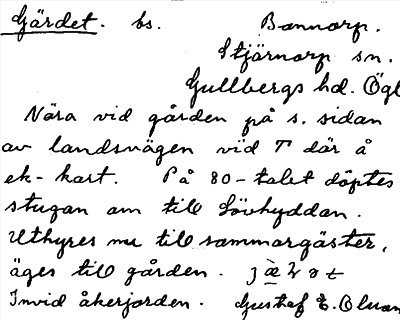 Gärdet. bs. Bannorp.
Stjärnorp sn.
Gullbergs hd. Ögl
Nära vid gården på s. sidan
av landsvägen vid T där å
ek-kart. På 80-talet döptes
stugan om till Lövhyddan.
Uthyres nu till sommargäster,
äges till gården.
Invid åkerjorden. Gustaf E. Olsson